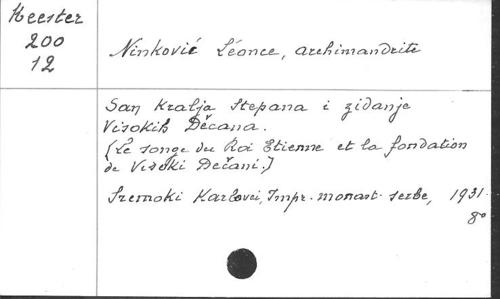 Keester
200
12
Ninković Léonce, archimandrite
San Kralja Stepana i zidanje
Visokih Děcana.
(Le songe du Roi Etienne et la fondation
de Visoki Dečani.)
Sremski Karlovci, Impr. monast. serbe, 1931.
8°